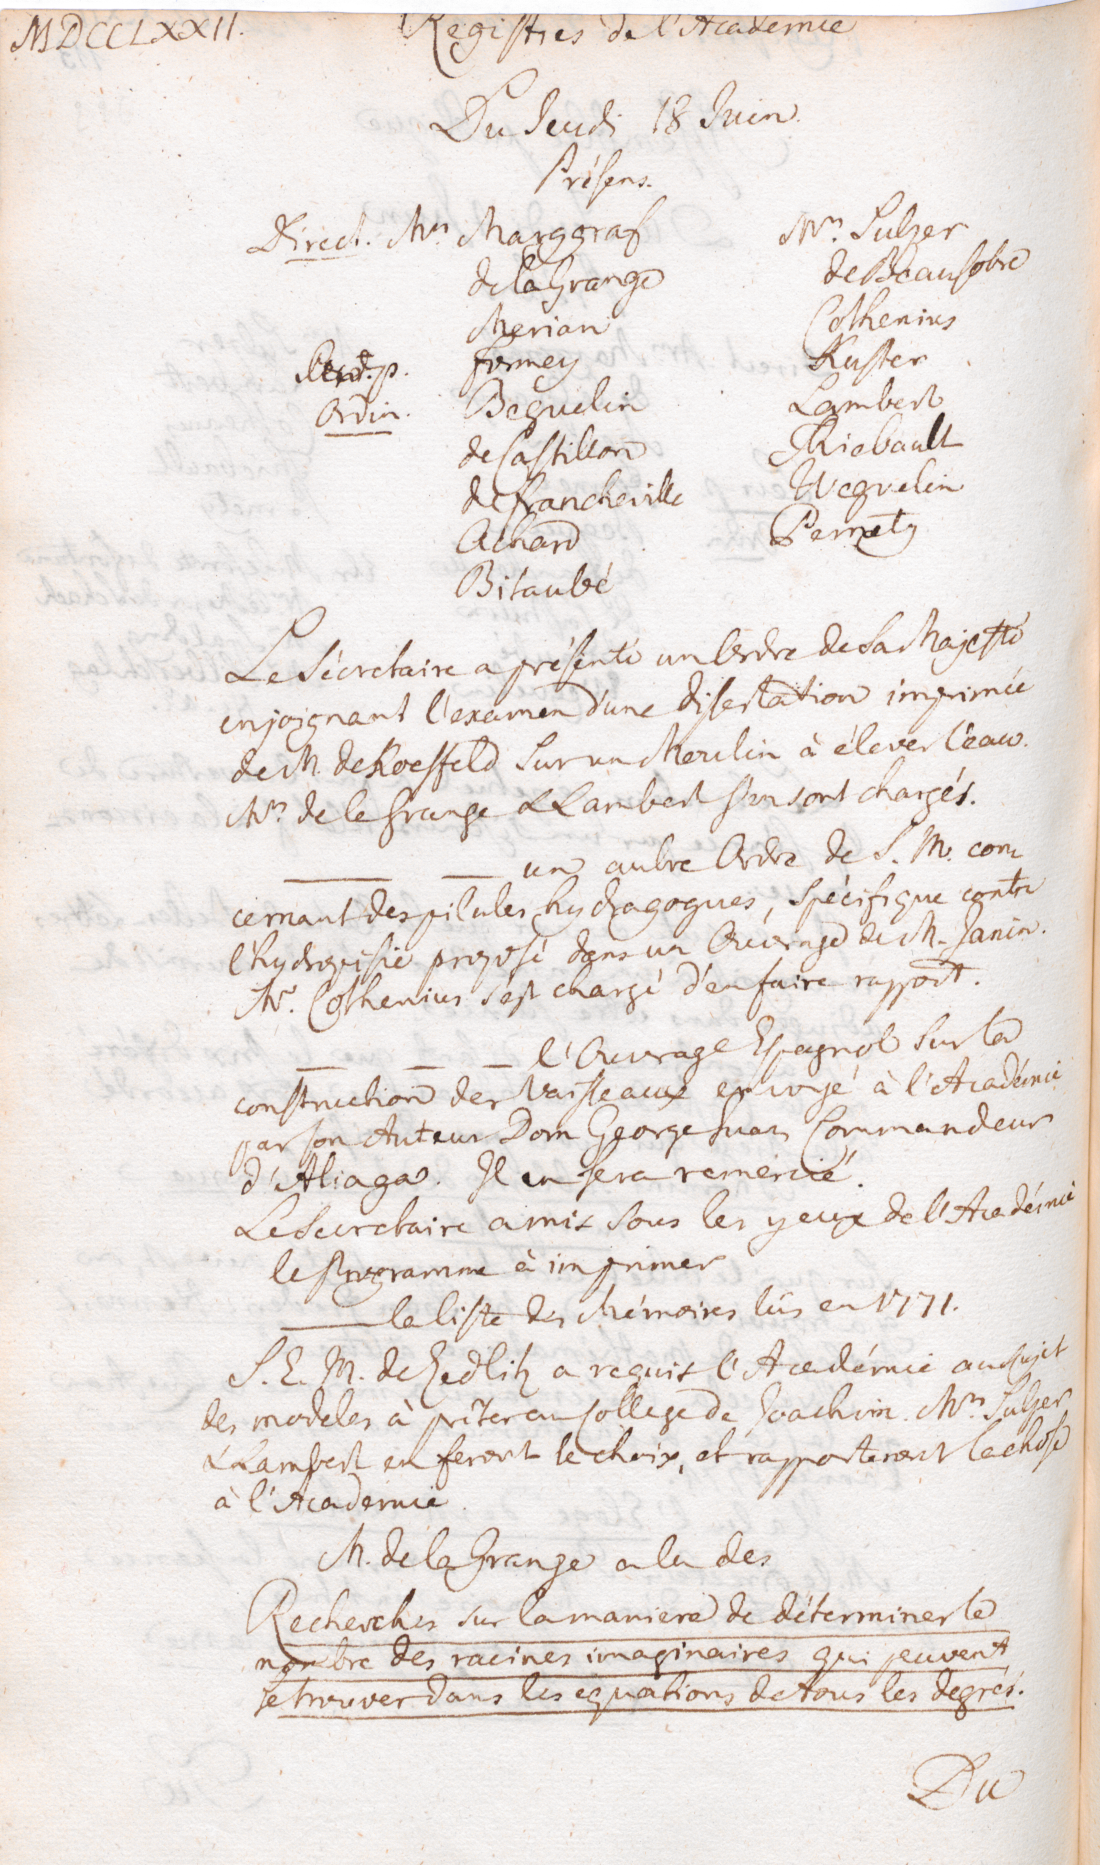 MDCCLXXII. Registres de l'Academie
Du Jeudi 18 Juin.
Présens.
Direct. Mrs. Marggraf
de la Grange
Merian
Secret. p. Formey
Ordin. Beguelin
de Castillon
de Francheville
Achard
Bitaubé
Mrs. Sulzer
de Beausobre
Cothenius
Kuster
Lambert
Thiebault
Weguelin
Pernety
Le Sécretaire a présenté un Ordre de Sa Majesté
enjoignant l'examen d'une dissertation imprimée
de M. de Koesfeld sur un Moulin à élever l'eau.
Mrs. de la Grange & Lambert s'en sont chargés.
un autre Ordre de S. M. con
cernant des pilules hydragogues, spécifique contre
l'hydropisie proposé dans un Ouvrage de M. Janin.
Mr. Cothenius s'est chargé d'en faire rapport.
l'Ouvrage Espagnol sur la
construction des Vaisseaux envoyé à l'Académie
par son Auteur Dom George Juan Commandeur
d'Aliaga. Il en sera remercié.
Le Secretaire a mis sous les yeux de l'Académie
le Programme à imprimer
la liste des Mémoires lûs en 1771.
S. E. M. de Zedlitz a requis l'Académie au sujet
des modeles à prêter au College de Joachim. Mrs. Sulzer
& Lambert en feront le choix, et rapporteront la chose
à l'Academie.
M. de la Grange a lu des
Recherches sur la maniere de déterminer le
nombre des racines imaginaires qui peuvent
se trouver dans les equations de tous les degrés.
Du